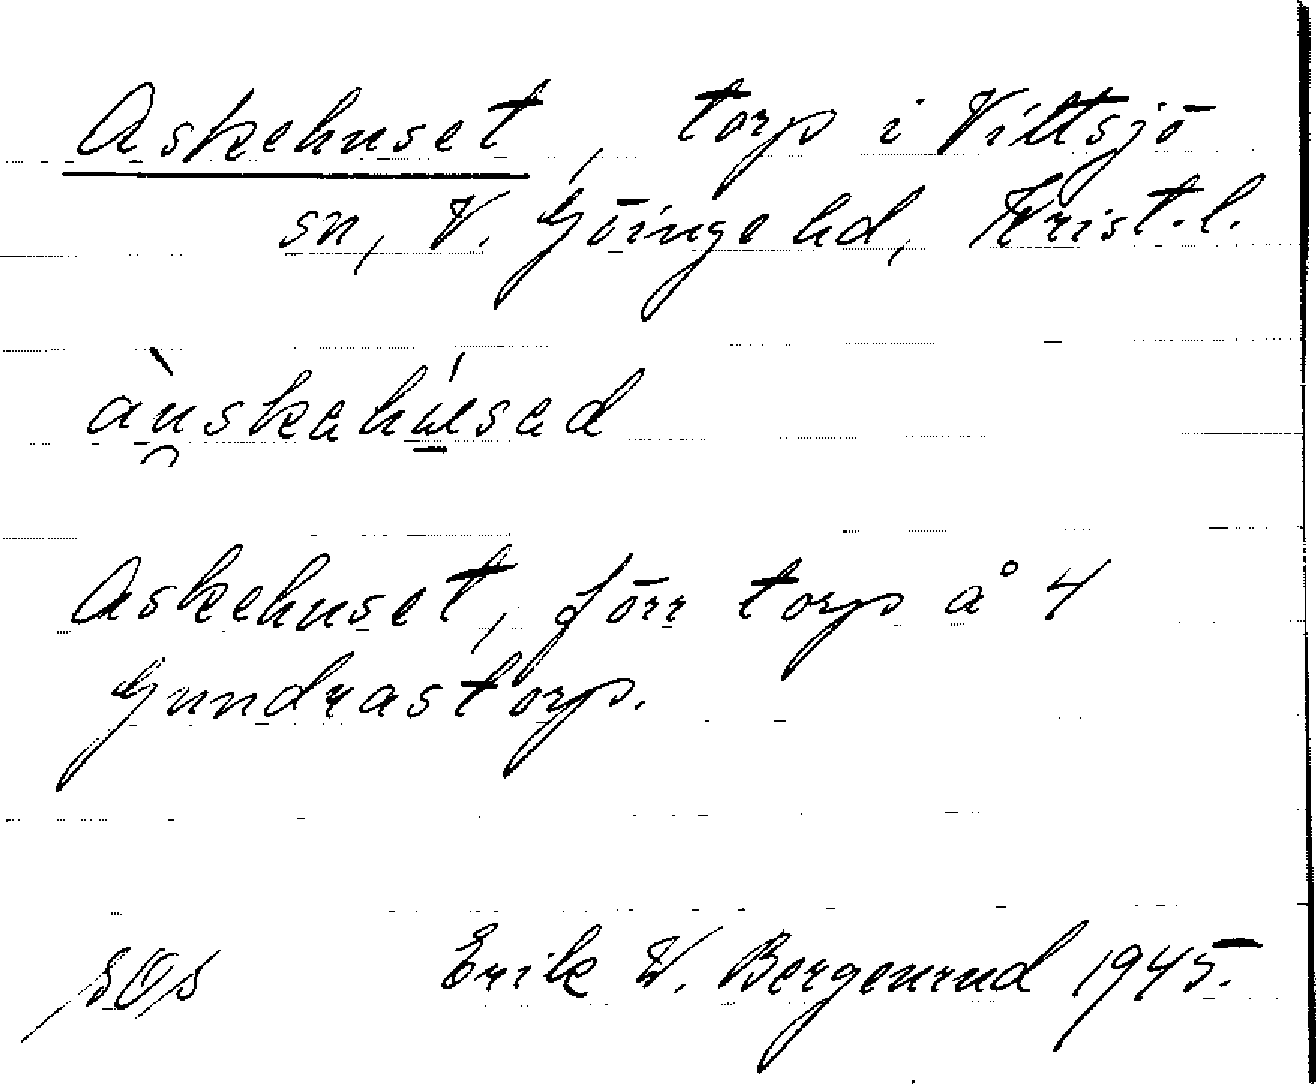 Askehuset, torp i Vittsjö
sn, V. Göinge hd, Krist. l.
àu̯skahúsad
Askehuset, förr torp å 4
Gundrastorp.
Erik W. Bergenrud 1945.